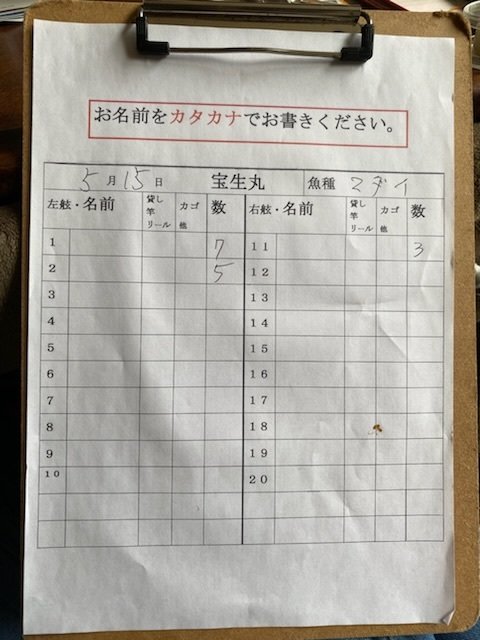 お名前をカタカナでお書きください。
5月15日 宝生丸 魚種 マダイ
左舷・名前 貸し竿リール カゴ他 数 右舷・名前 貸し竿リール カゴ他 数
1 7 11 3
2 5 12
3 13
4 14
5 15
6 16
7 17
8 18
9 19
10 20